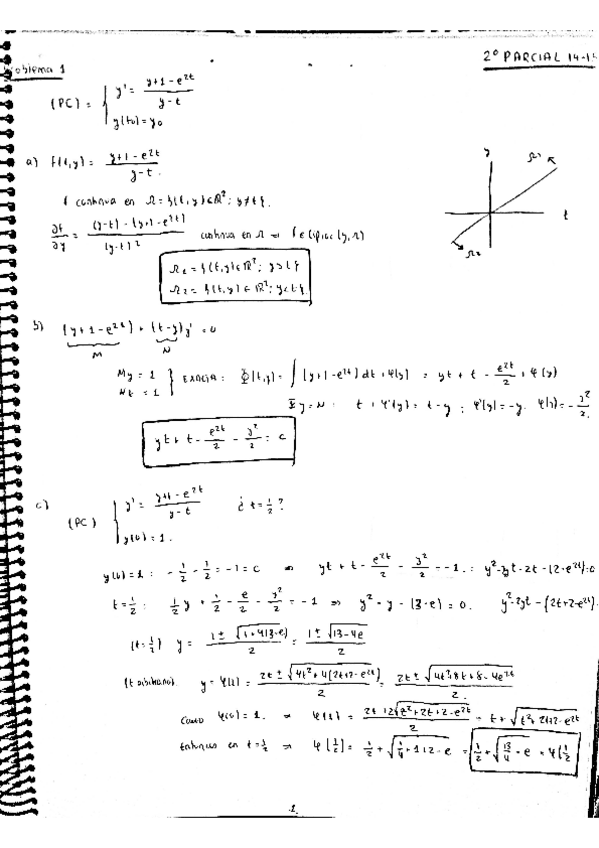 2º PARCIAL 14-15
Problema 1
(PC) = { y' = (y+1-e^{2t})/(y-t)
y(t0) = y0
a) f(t,y) = (y+1-e^{2t})/(y-t).
f continua en Ω = {(t,y)∈ℝ²; y≠t}.
∂f/∂y = ((y-t)-(y+1-e^{2t}))/(y-t)² continua en Ω ⇒ f ∈ Liploc(y,Ω)
y
t
Ω1
Ω2
Ω1 = {(t,y)∈ℝ²; y>t}
Ω2 = {(t,y)∈ℝ²; y<t}
b) (y+1-e^{2t}) + (t-y)y' = 0
M N
My = 1
Nt = 1 } EXACTA: Φ(t,y) = ∫(y+1-e^{2t})dt + φ(y) = yt + t - e^{2t}/2 + φ(y)
Φy = N: t + φ'(y) = t-y; φ'(y) = -y. φ(y) = -y²/2.
yt + t - e^{2t}/2 - y²/2 = c
c) (PC) { y' = (y+1-e^{2t})/(y-t) ¿t=1/2?
y(0) = 1.
y(0)=1: -1/2 - 1/2 = -1 = c ⇒ yt + t - e^{2t}/2 - y²/2 = -1.: y²-2yt-2t-(2-e^{2t})=0
t=1/2: 1/2 y + 1/2 - e/2 - y²/2 = -1 ⇒ y² - y - (3-e) = 0. y²-2yt-(2t+2-e^{2t}).
(t=1/2) y = (1±√(1+4(3-e)))/2 = (1±√(13-4e))/2
y = φ(t) = (2t±√(4t²+4(2t+2-e^{2t})))/2 = (2t±√(4t²+8t+8-4e^{2t}))/2.
Como φ(0)=1. ⇒ φ(t) = (2t+2√(t²+2t+2-e^{2t}))/2 = t+√(t²+2t+2-e^{2t})
Entonces en t=1/2 ⇒ φ(1/2) = 1/2 + √(1/4+1+2-e) = 1/2 + √(13/4-e) = φ(1/2
1.